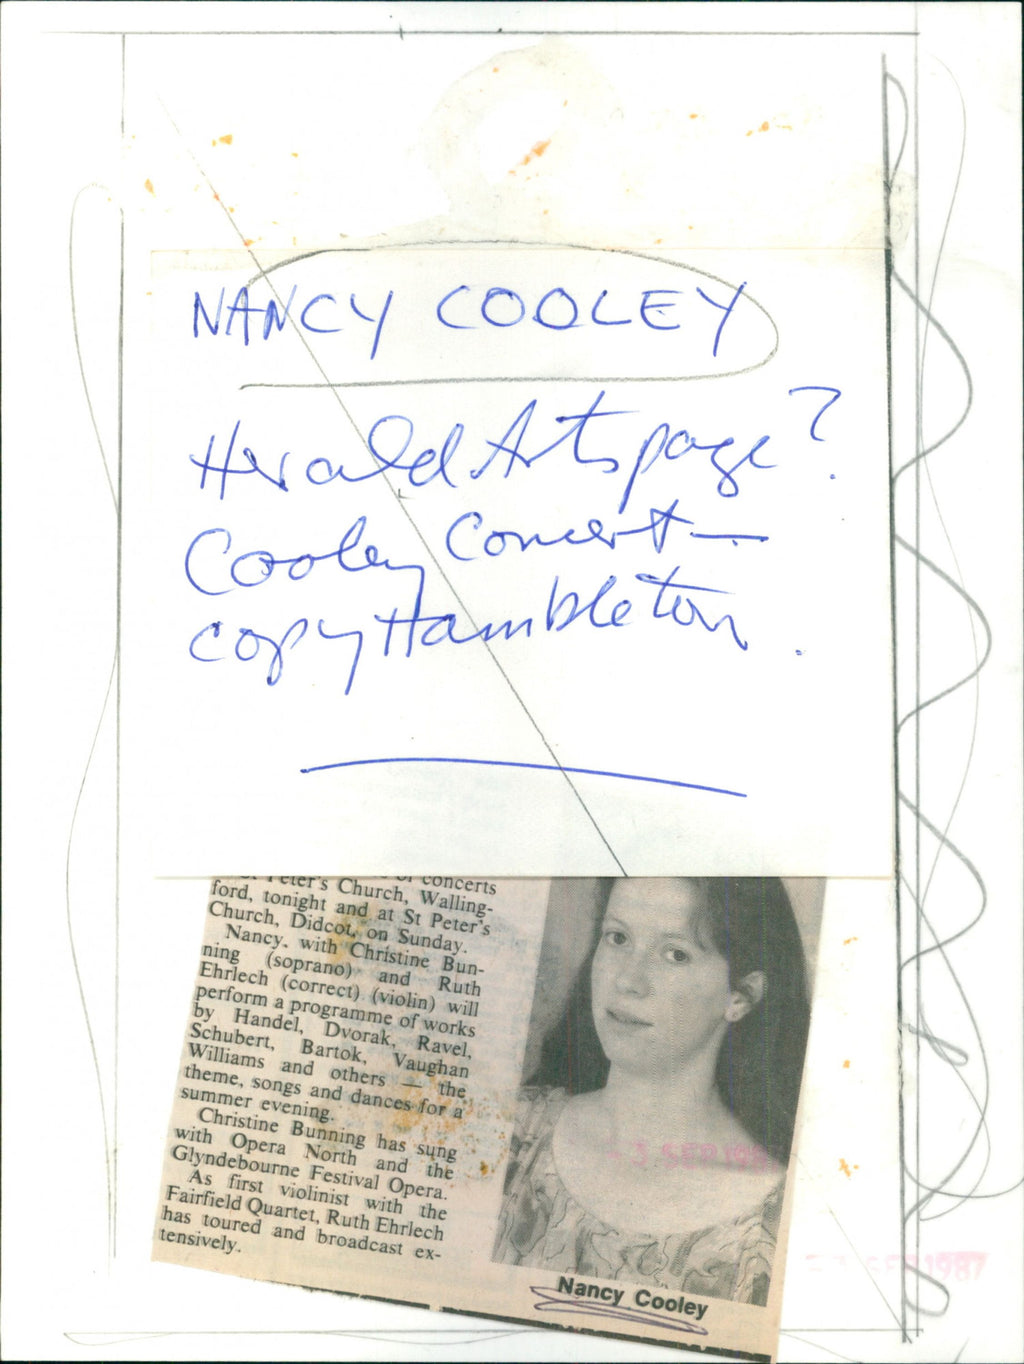 NANCY COOLEY
Herald Arts page?
Cooley Concert —
copy Hambleton.
of concerts
St Peter's Church, Walling-
ford, tonight and at St Peter's
Church, Didcot, on Sunday.
Nancy, with Christine Bun-
ning (soprano) and Ruth
Ehrlech (correct) (violin) will
perform a programme of works
by Handel, Dvorak, Ravel,
Schubert, Bartok, Vaughan
Williams and others — the
theme, songs and dances for a
summer evening.
Christine Bunning has sung
with Opera North and the
Glyndebourne Festival Opera.
As first violinist with the
Fairfield Quartet, Ruth Ehrlech
has toured and broadcast ex-
tensively.
- 3 SEP 1987
Nancy Cooley
- 3 SEP 1987